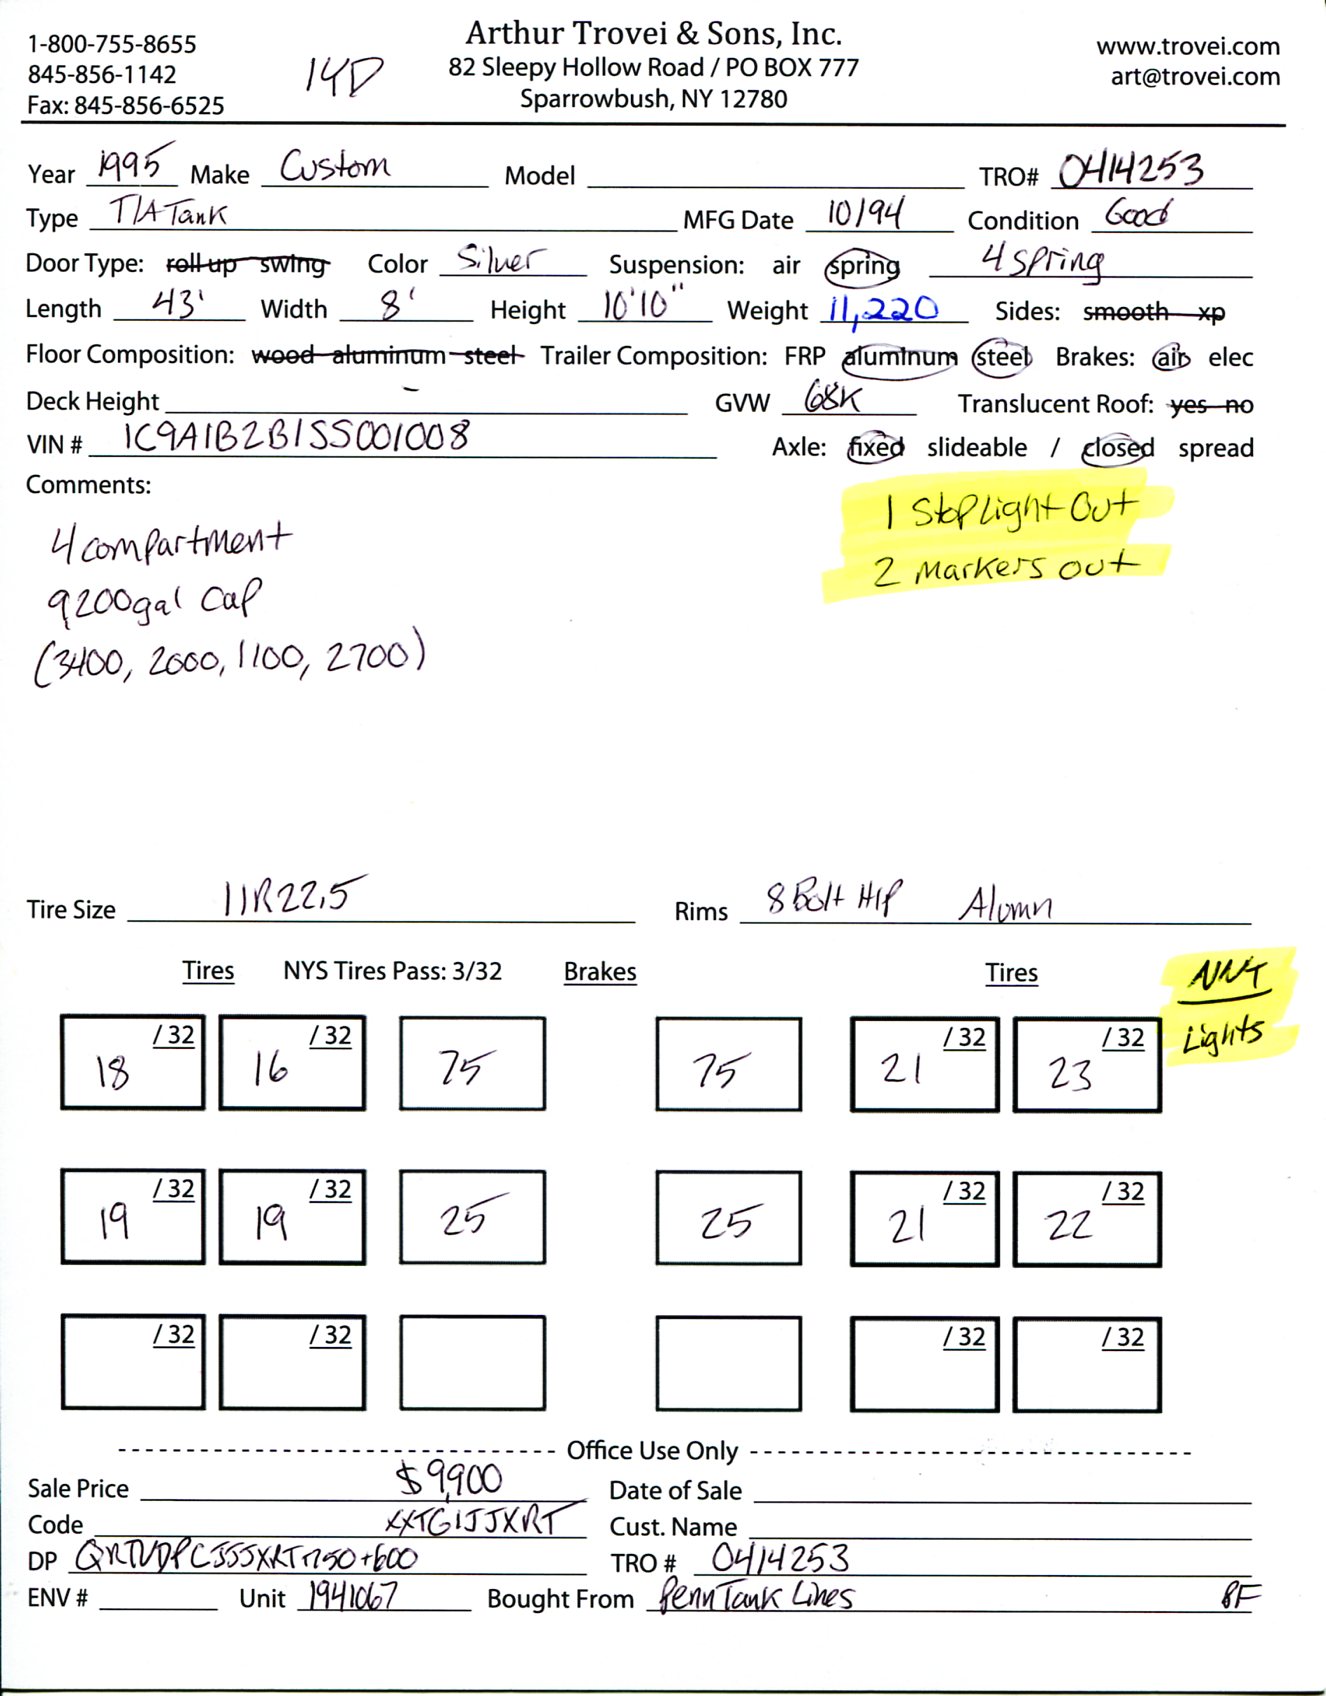 Arthur Trovei & Sons, Inc.
1-800-755-8655 www.trovei.com
845-856-1142 14D 82 Sleepy Hollow Road / PO BOX 777 art@trovei.com
Fax: 845-856-6525 Sparrowbush, NY 12780
Year 1995 Make Custom Model TRO# 0414253
Type T/A Tank MFG Date 10/94 Condition Good
Door Type: roll up swing Color Silver Suspension: air spring 4 spring
Length 43' Width 8' Height 10'10" Weight 11,220 Sides: smooth xp
Floor Composition: wood aluminum steel Trailer Composition: FRP aluminum steel Brakes: air elec
Deck Height - GVW 68K Translucent Roof: yes no
VIN # 1C9A1B2B1SS001008 Axle: fixed slideable / closed spread
Comments:
1 Stop Light Out
4 compartment
2 Markers out
9,200gal Cap
(3400, 2000, 1100, 2700)
Tire Size 11R22.5 Rims 8 Bolt H/P Alumn
Tires NYS Tires Pass: 3/32 Brakes Tires
Lights
18 /32 16 /32 75 75 21 /32 23 /32
19 /32 19 /32 25 25 21 /32 22 /32
/32 /32 /32 /32
Office Use Only
Sale Price $9,900 Date of Sale
Code XXTGIJJXRT Cust. Name
DP TRO # 0414253
ENV # Unit 1941067 Bought From Penn Tank Lines BF